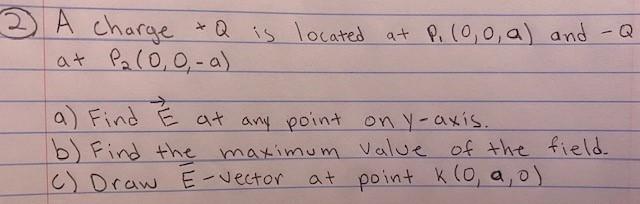 2) A charge +Q is located at P₁(0,0,a) and -Q
at P₂(0,0,-a)
a) Find E⃗ at any point on y-axis.
b) Find the maximum value of the field.
c) Draw E̅-vector at point K(0,a,0)